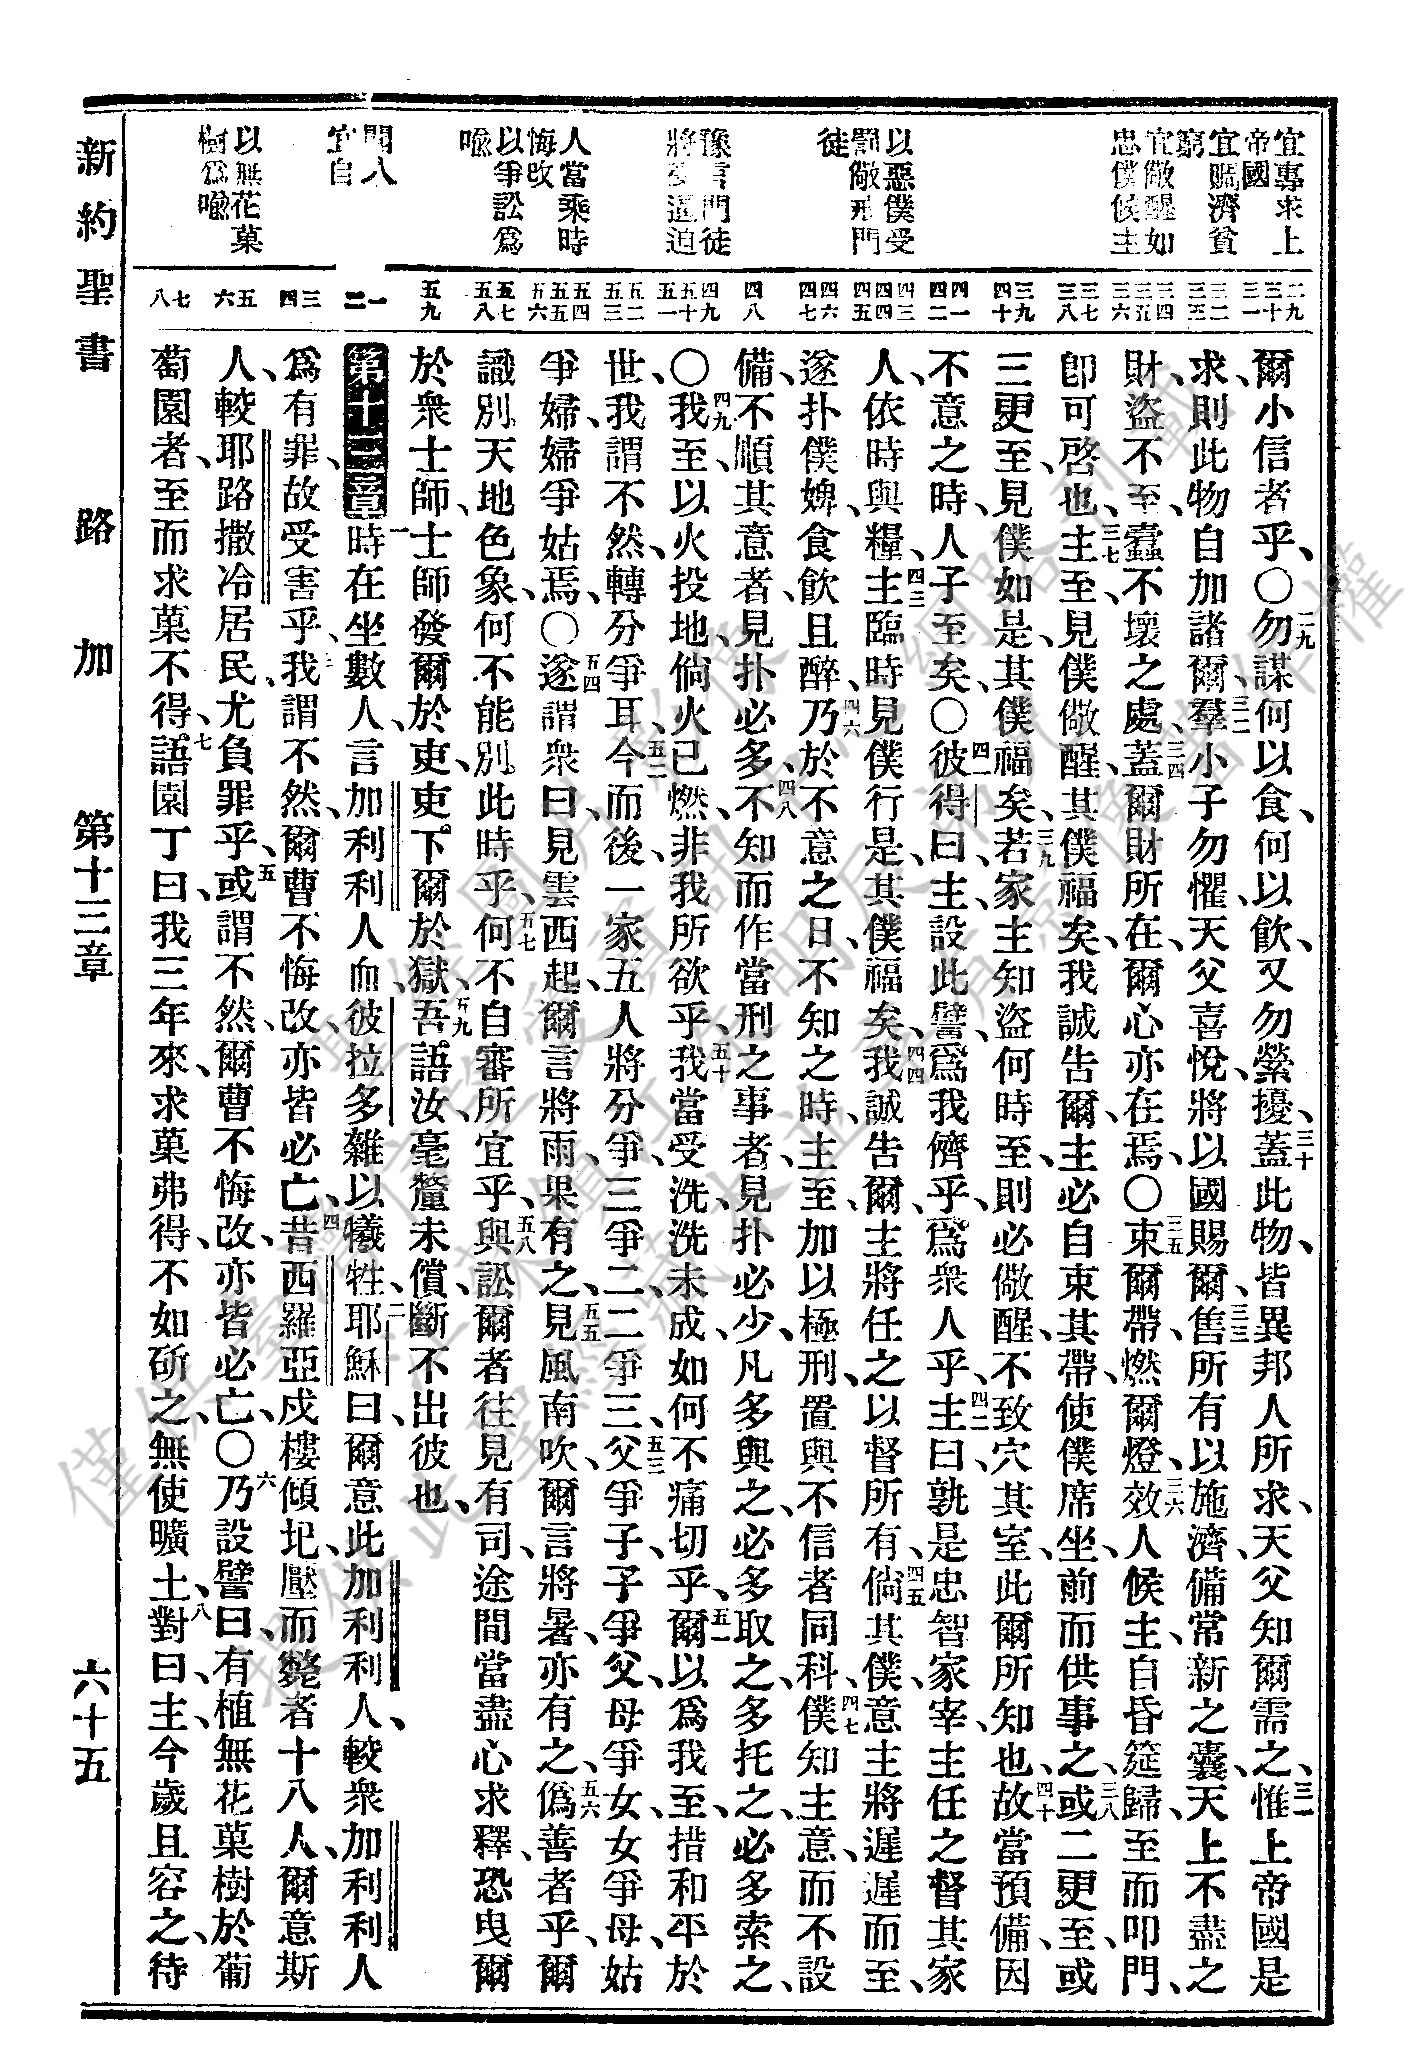 宜專求上
帝國
宜賙濟貧
窮
宜儆醒如
忠僕候主
以惡僕受
罰儆戒門
徒
豫言門徒
將受逼迫
人當乘時
悔改
以爭訟爲
喩
以無花菓
樹爲喩
二九 三十 三一
三二 三三
三四 三五 三六
三七 三八
三九 四十
四一 四二
四三 四四 四五
四六 四七
四八
四九 五十 五一
五二 五三
五四 五五 五六
五七 五八
五九
一 二
三 四
五 六
七 八
爾小信者乎、○二九勿謀何以食、何以飮、又勿縈擾、三十蓋此物、皆異邦人所求、天父知爾需之、三一惟上帝國是
求、則此物自加諸爾、三二羣小子勿懼、天父喜悅、將以國賜爾、三三售所有以施濟、備常新之囊、天上不盡之
財、盜不至、蠹不壞之處、三四蓋爾財所在、爾心亦在焉、○三五束爾帶、燃爾燈、三六效人候主、自昏筵歸、至而叩門、
卽可啓也、三七主至、見僕儆醒、其僕福矣、我誠告爾、主必自束其帶、使僕席坐、前而供事之、三八或二更至、或
三更至、見僕如是、其僕福矣、三九若家主知盜何時至、則必儆醒、不致穴其室、此爾所知也、四十故當預備、因
不意之時、人子至矣、○四一彼得曰、主設此譬、爲我儕乎、爲衆人乎、四二主曰、孰是忠智家宰、主任之督其家
人、依時與糧、四三主臨時、見僕行是、其僕福矣、四四我誠告爾、主將任之以督所有、四五倘其僕意主將遲遲而至、
遂扑僕婢、食飮且醉、四六乃於不意之日、不知之時、主至、加以極刑、置與不信者同科、四七僕知主意、而不設
備、不順其意者、見扑必多、四八不知而作當刑之事者、見扑必少、凡多與之、必多取之、多托之、必多索之、
○四九我至、以火投地、倘火已燃、非我所欲乎、五十我當受洗、洗未成、如何不痛切乎、五一爾以爲我至、措和平於
世、我謂不然、轉分爭耳、五二今而後一家五人將分爭、三爭二、二爭三、五三父爭子、子爭父、母爭女、女爭母、姑
爭婦、婦爭姑焉、○五四遂謂衆曰、見雲西起、爾言將雨、果有之、五五見風南吹、爾言將暑、亦有之、五六僞善者乎、爾
識別天地色象、何不能別此時乎、五七何不自審所宜乎、五八與訟爾者往見有司、途間當盡心求釋、恐曳爾
於衆士師、士師發爾於吏、吏下爾於獄、五九吾語汝、毫釐未償、斷不出彼也、
第十三章 一時在坐數人、言加利利人血、彼拉多雜以犧牲、二耶穌曰、爾意此加利利人、較衆加利利人
爲有罪、故受害乎、三我謂不然、爾曹不悔改、亦皆必亡、四昔西羅亞戍樓傾圮、壓而斃者十八人、爾意斯
人、較耶路撒冷居民、尤負罪乎、五或謂不然、爾曹不悔改、亦皆必亡、○六乃設譬曰、有植無花菓樹於葡
萄園者、至而求菓不得、七語園丁曰、我三年來求菓弗得、不如斫之、無使曠土、八對曰、主、今歲且容之、待
新約聖書 路加 第十三章 六十五
僅供